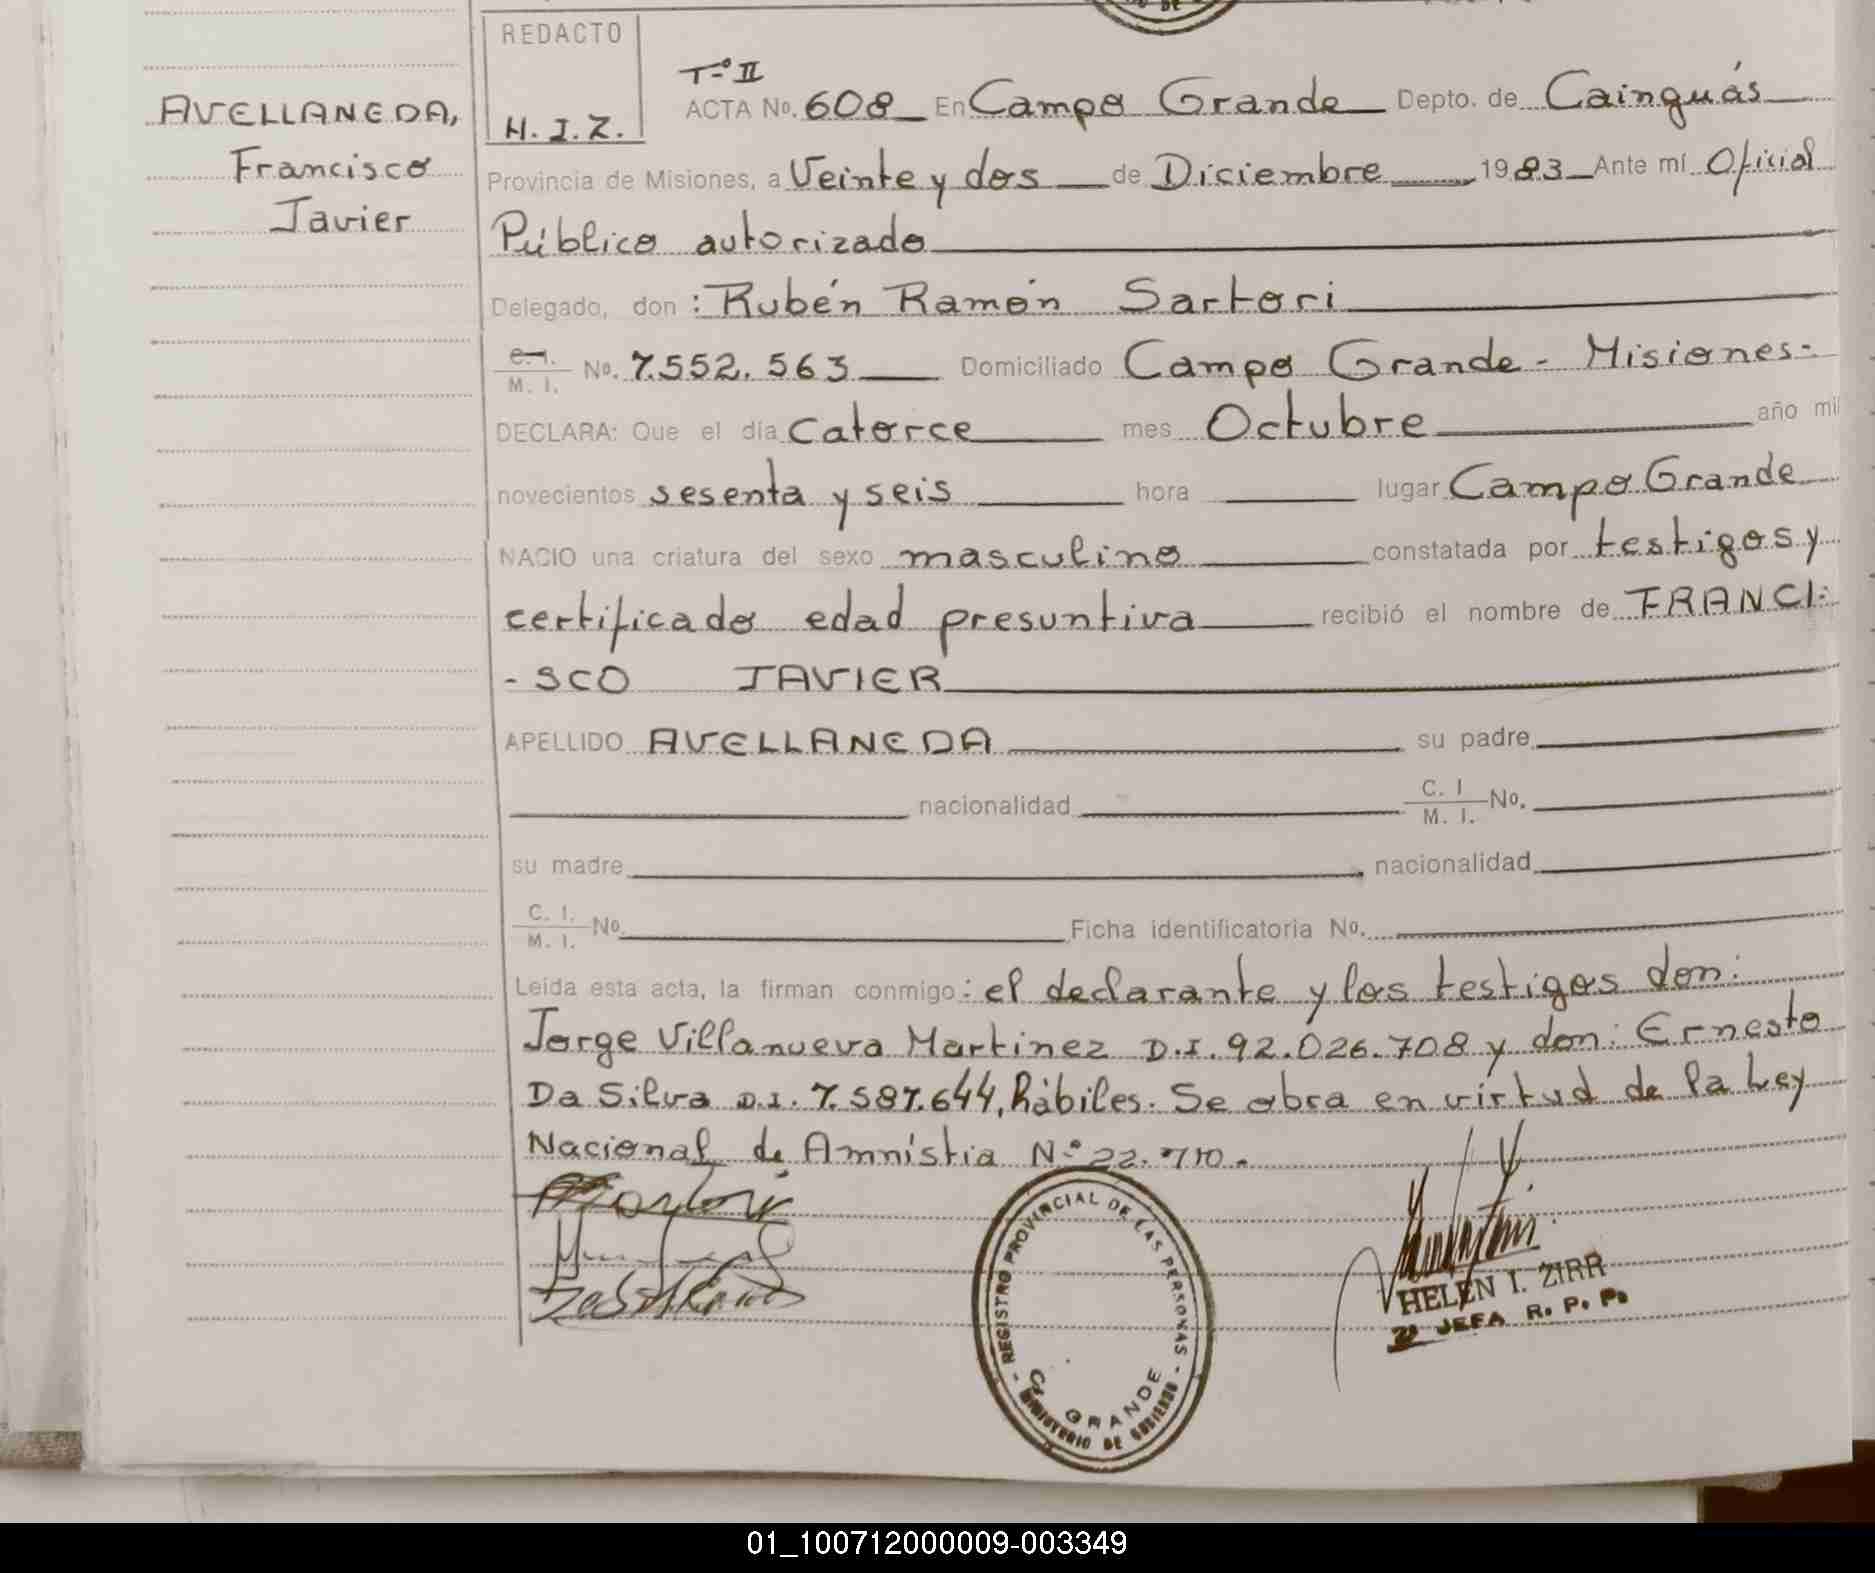 REDACTO
H. I. Z.
AVELLANEDA,
Francisco
Javier
Tº II
ACTA No. 608 En Campo Grande Depto. de Cainguás
Provincia de Misiones, a Veinte y dos de Diciembre 1983 Ante mí Oficial
Público autorizado
Delegado, don : Rubén Ramón Sartori
C. I. / M. I. No. 7.552.563 Domiciliado Campo Grande - Misiones-
DECLARA: Que el día Catorce mes Octubre año mil
novecientos sesenta y seis hora lugar Campo Grande
NACIO una criatura del sexo masculino constatada por testigos y
certificado edad presuntiva recibió el nombre de FRANCI-
- SCO JAVIER
APELLIDO AVELLANEDA su padre
nacionalidad C. I / M. I. No.
su madre nacionalidad
C. I. / M. I. No. Ficha identificatoria No.
Leída esta acta, la firman conmigo: el declarante y los testigos don:
Jorge Villanueva Martinez D.I. 92.026.708 y don: Ernesto
Da Silva D.I. 7.587.644, hábiles. Se obra en virtud de la Ley
Nacional de Amnistia Nº 22.710.
REGISTRO PROVINCIAL DE LAS PERSONAS - MINISTERIO DE GOBIERNO -
GRANDE
HELEN I. ZIRR
JEFA R. P. P.
01_100712000009-003349